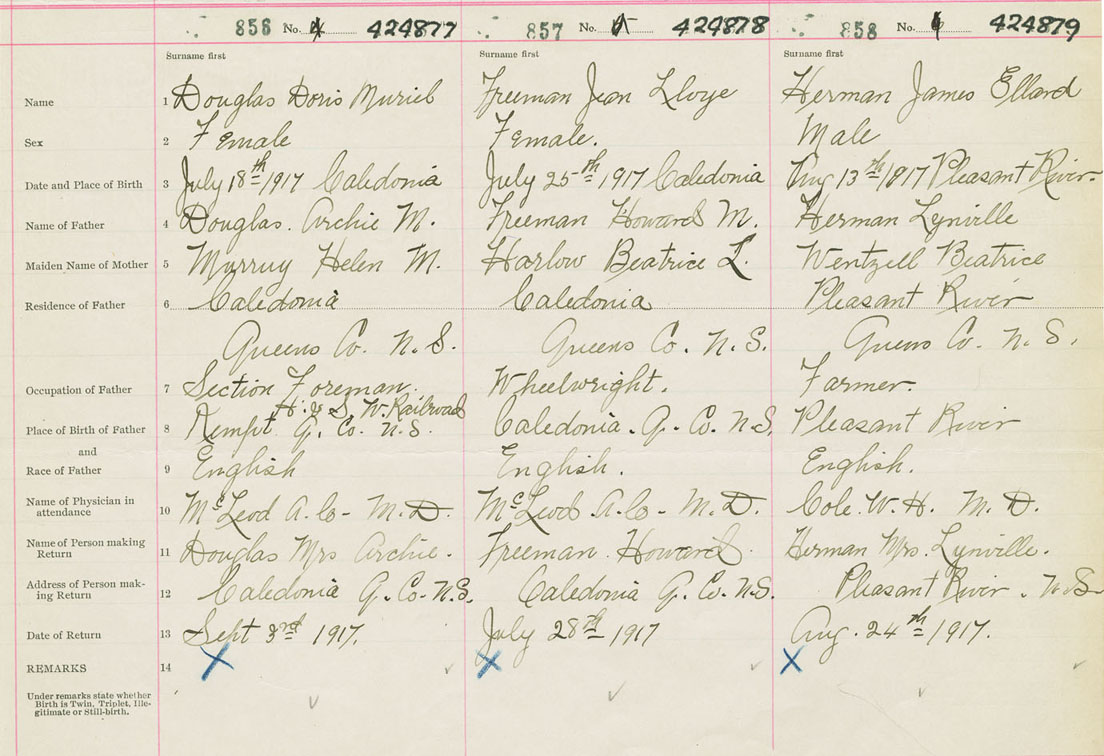 856 No. 4 424877 857 No. 5 424878 858 No. 6 424879
Surname first Surname first Surname first
Name 1 Douglas Doris Muriel Freeman Jean Lloye Herman James Ellard
Sex 2 Female Female. Male
Date and Place of Birth 3 July 18th 1917 Caledonia July 25th 1917 Caledonia Aug 13th 1917 Pleasant River
Name of Father 4 Douglas. Archie M. Freeman Howard M. Herman Lynville
Maiden Name of Mother 5 Murray Helen M. Harlow Beatrice L. Wentzell Beatrice
Residence of Father 6 Caledonia Caledonia Pleasant River
Queens Co. N. S. Queens Co. N. S. Queens Co. N. S.
Occupation of Father 7 Section Foreman. Wheelwright. Farmer.
H. & S. W. Railroad
Place of Birth of Father 8 Kempt Q. Co. N.S. Caledonia. Q. Co. N.S. Pleasant River
and
Race of Father 9 English English. English.
Name of Physician in
attendance 10 McLeod A. C. M. D. McLeod A. C. M. D. Cole. W. H. M. D.
Name of Person making
Return 11 Douglas Mrs Archie. Freeman Howard Herman Mrs. Lynville.
Address of Person mak-
ing Return 12 Caledonia Q. Co. N.S. Caledonia Q. Co. N.S. Pleasant River. N.S.
Date of Return 13 Sept 3rd 1917. July 28th 1917 Aug. 24th 1917.
REMARKS 14 X X X
Under remarks state whether
Birth is Twin, Triplet, Ille-
gitimate or Still-birth.